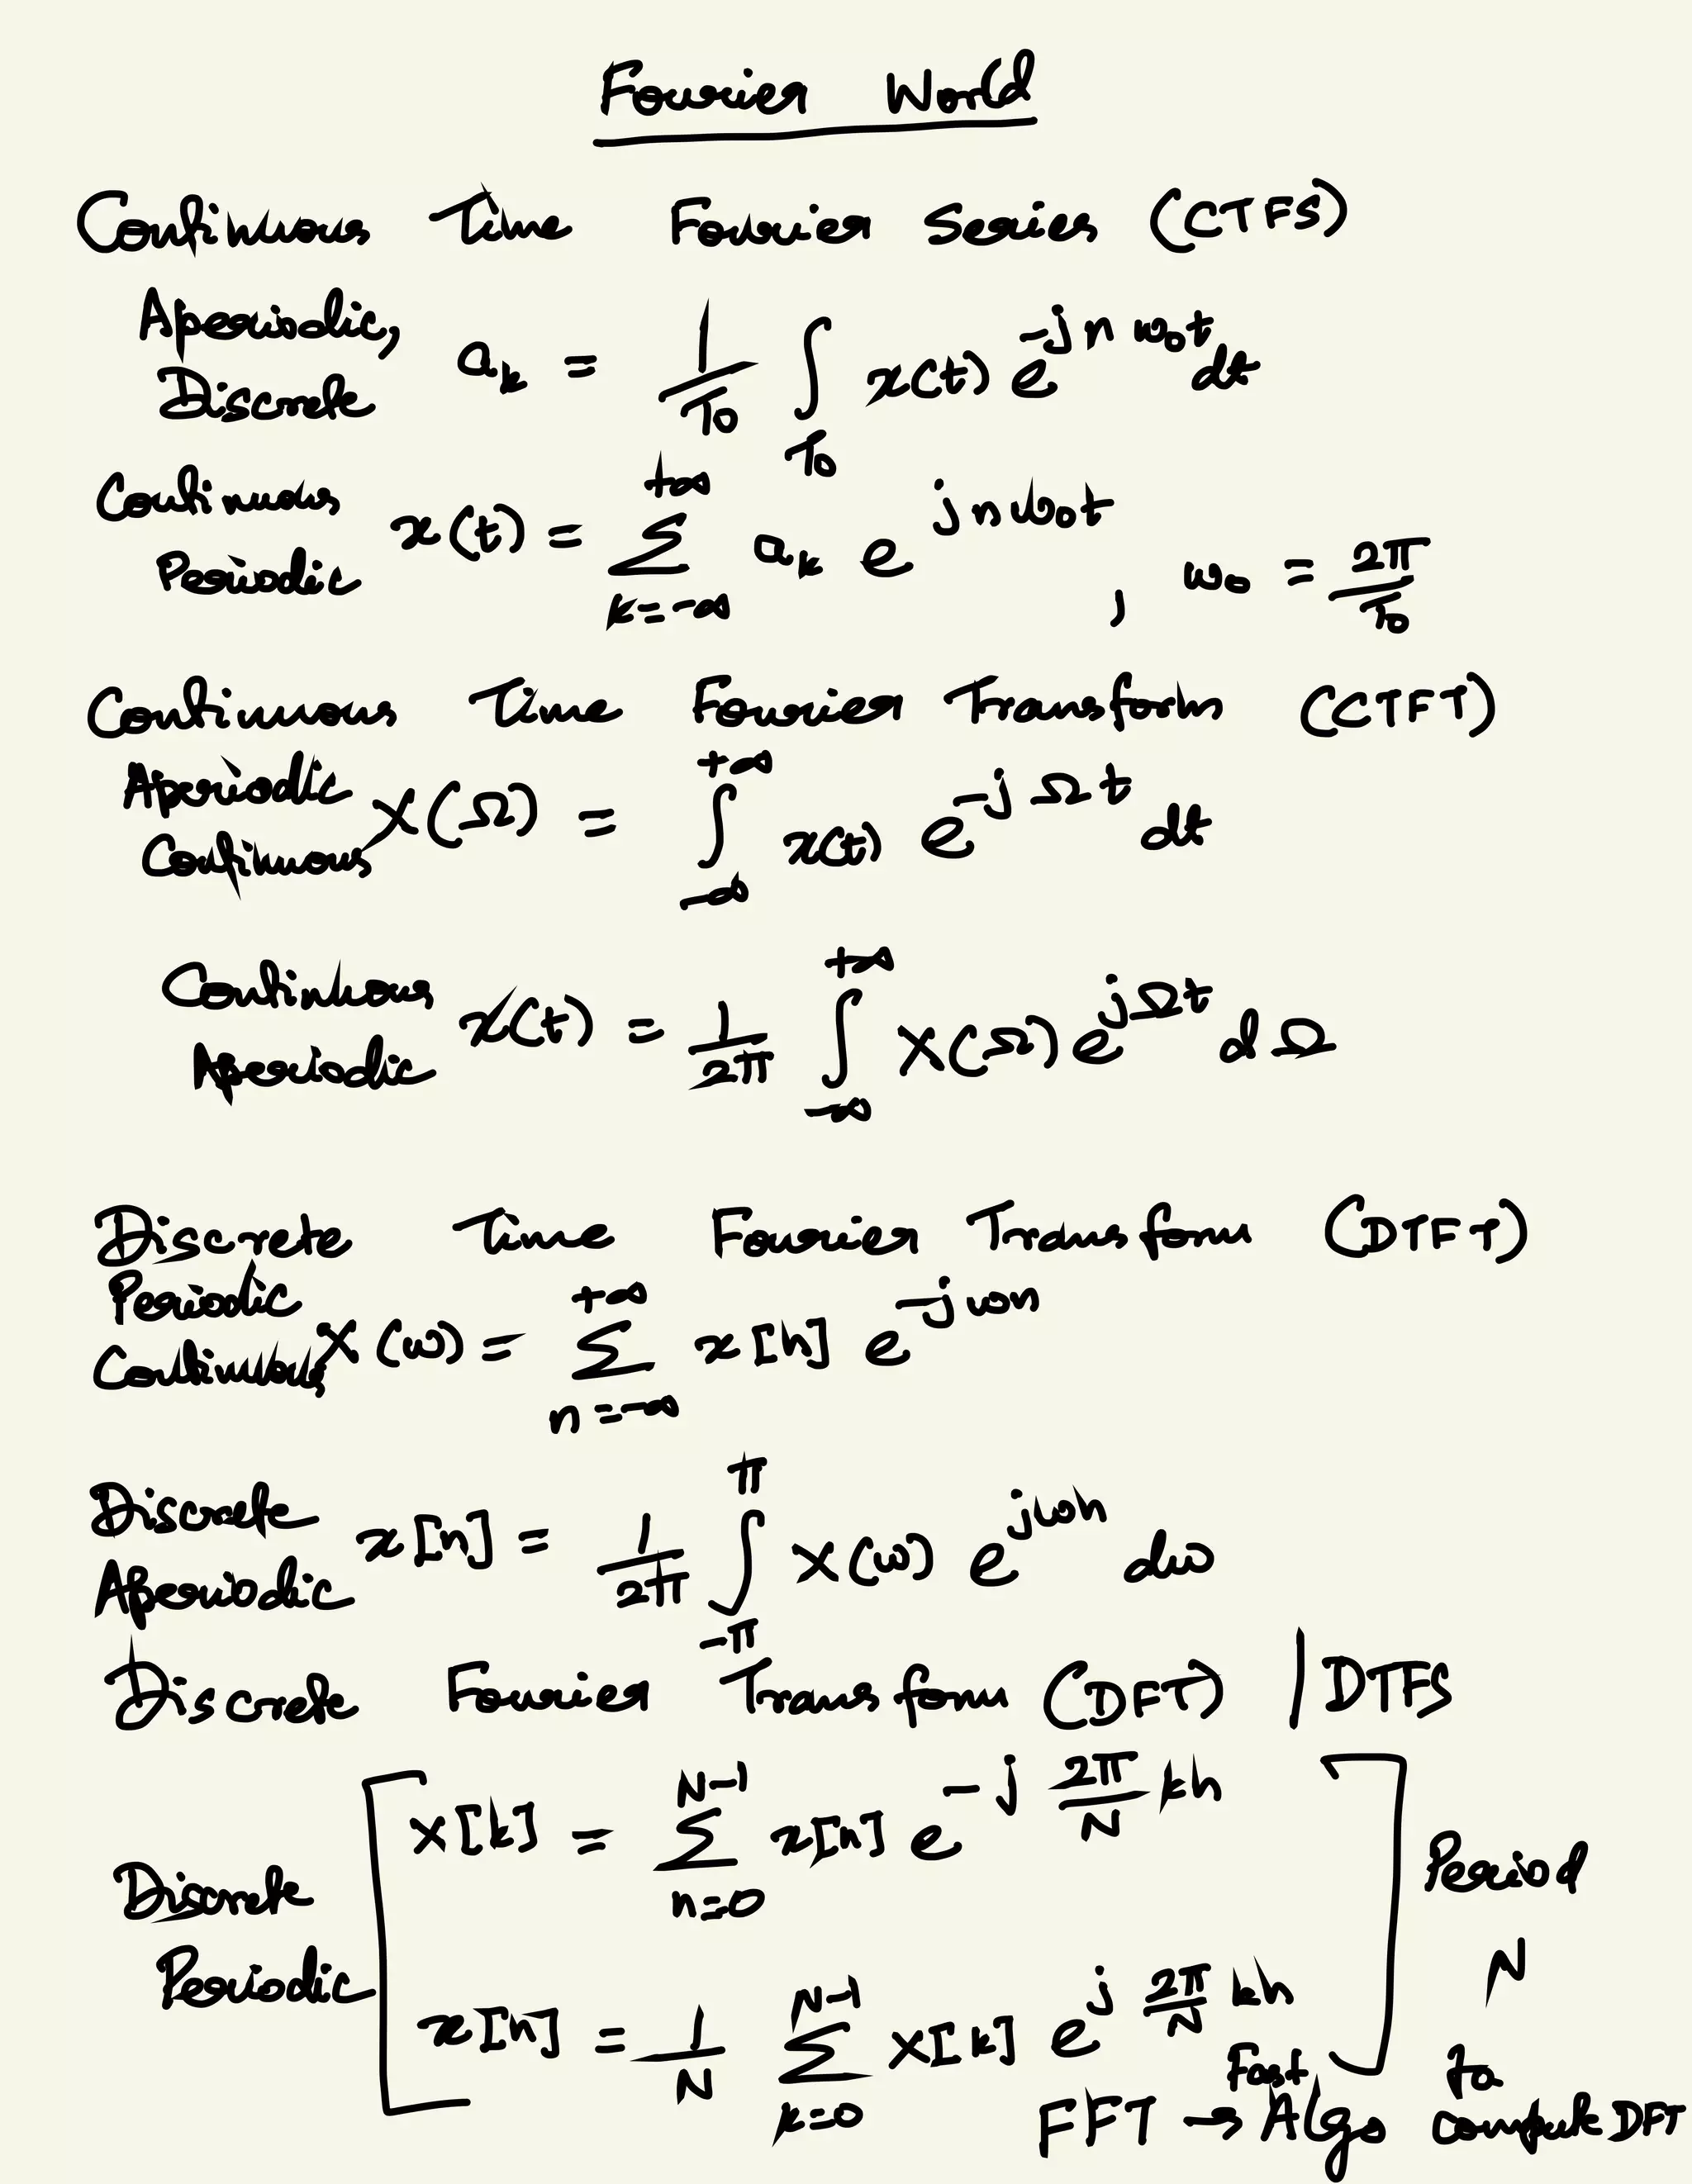 Fourier World
Continuous Time Fourier Series (CTFS)
Aperiodic, Discrete a_k = 1/T₀ ∫_{T₀} x(t) e^{-jnω₀t} dt
Continuous Periodic x(t) = Σ_{k=-∞}^{+∞} a_k e^{jnω₀t}, ω₀ = 2π/T₀
Continuous Time Fourier Transform (CTFT)
Aperiodic Continuous X(Ω) = ∫_{-∞}^{+∞} x(t) e^{-jΩt} dt
Continuous Aperiodic x(t) = 1/2π ∫_{-∞}^{+∞} X(Ω) e^{jΩt} dΩ
Discrete Time Fourier Transform (DTFT)
Periodic Continuous X(ω) = Σ_{n=-∞}^{+∞} x[n] e^{-jωn}
Discrete Aperiodic x[n] = 1/2π ∫_{-π}^{π} X(ω) e^{jωn} dω
Discrete Fourier Transform (DFT) | DTFS
Discrete Periodic [ X[k] = Σ_{n=0}^{N-1} x[n] e^{-j 2π/N kn}
x[n] = 1/N Σ_{k=0}^{N-1} X[k] e^{j 2π/N kn} ] Period N
FFT → Fast Algo to compute DFT